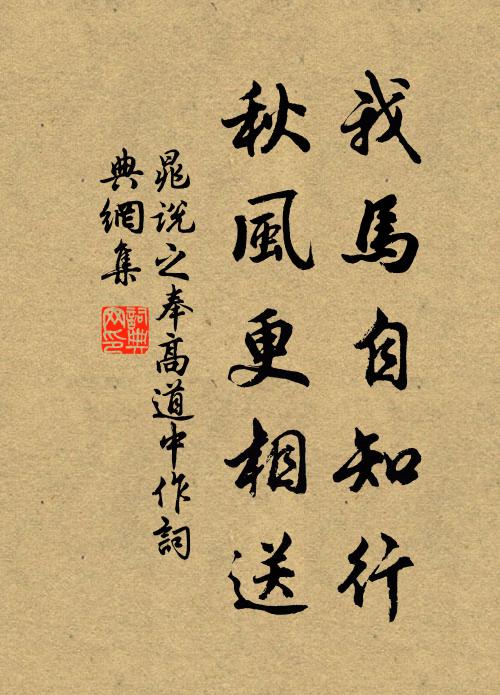 我馬自知行
秋風更相送
晁說之奉高道中作詞
典網集
詞典
网印